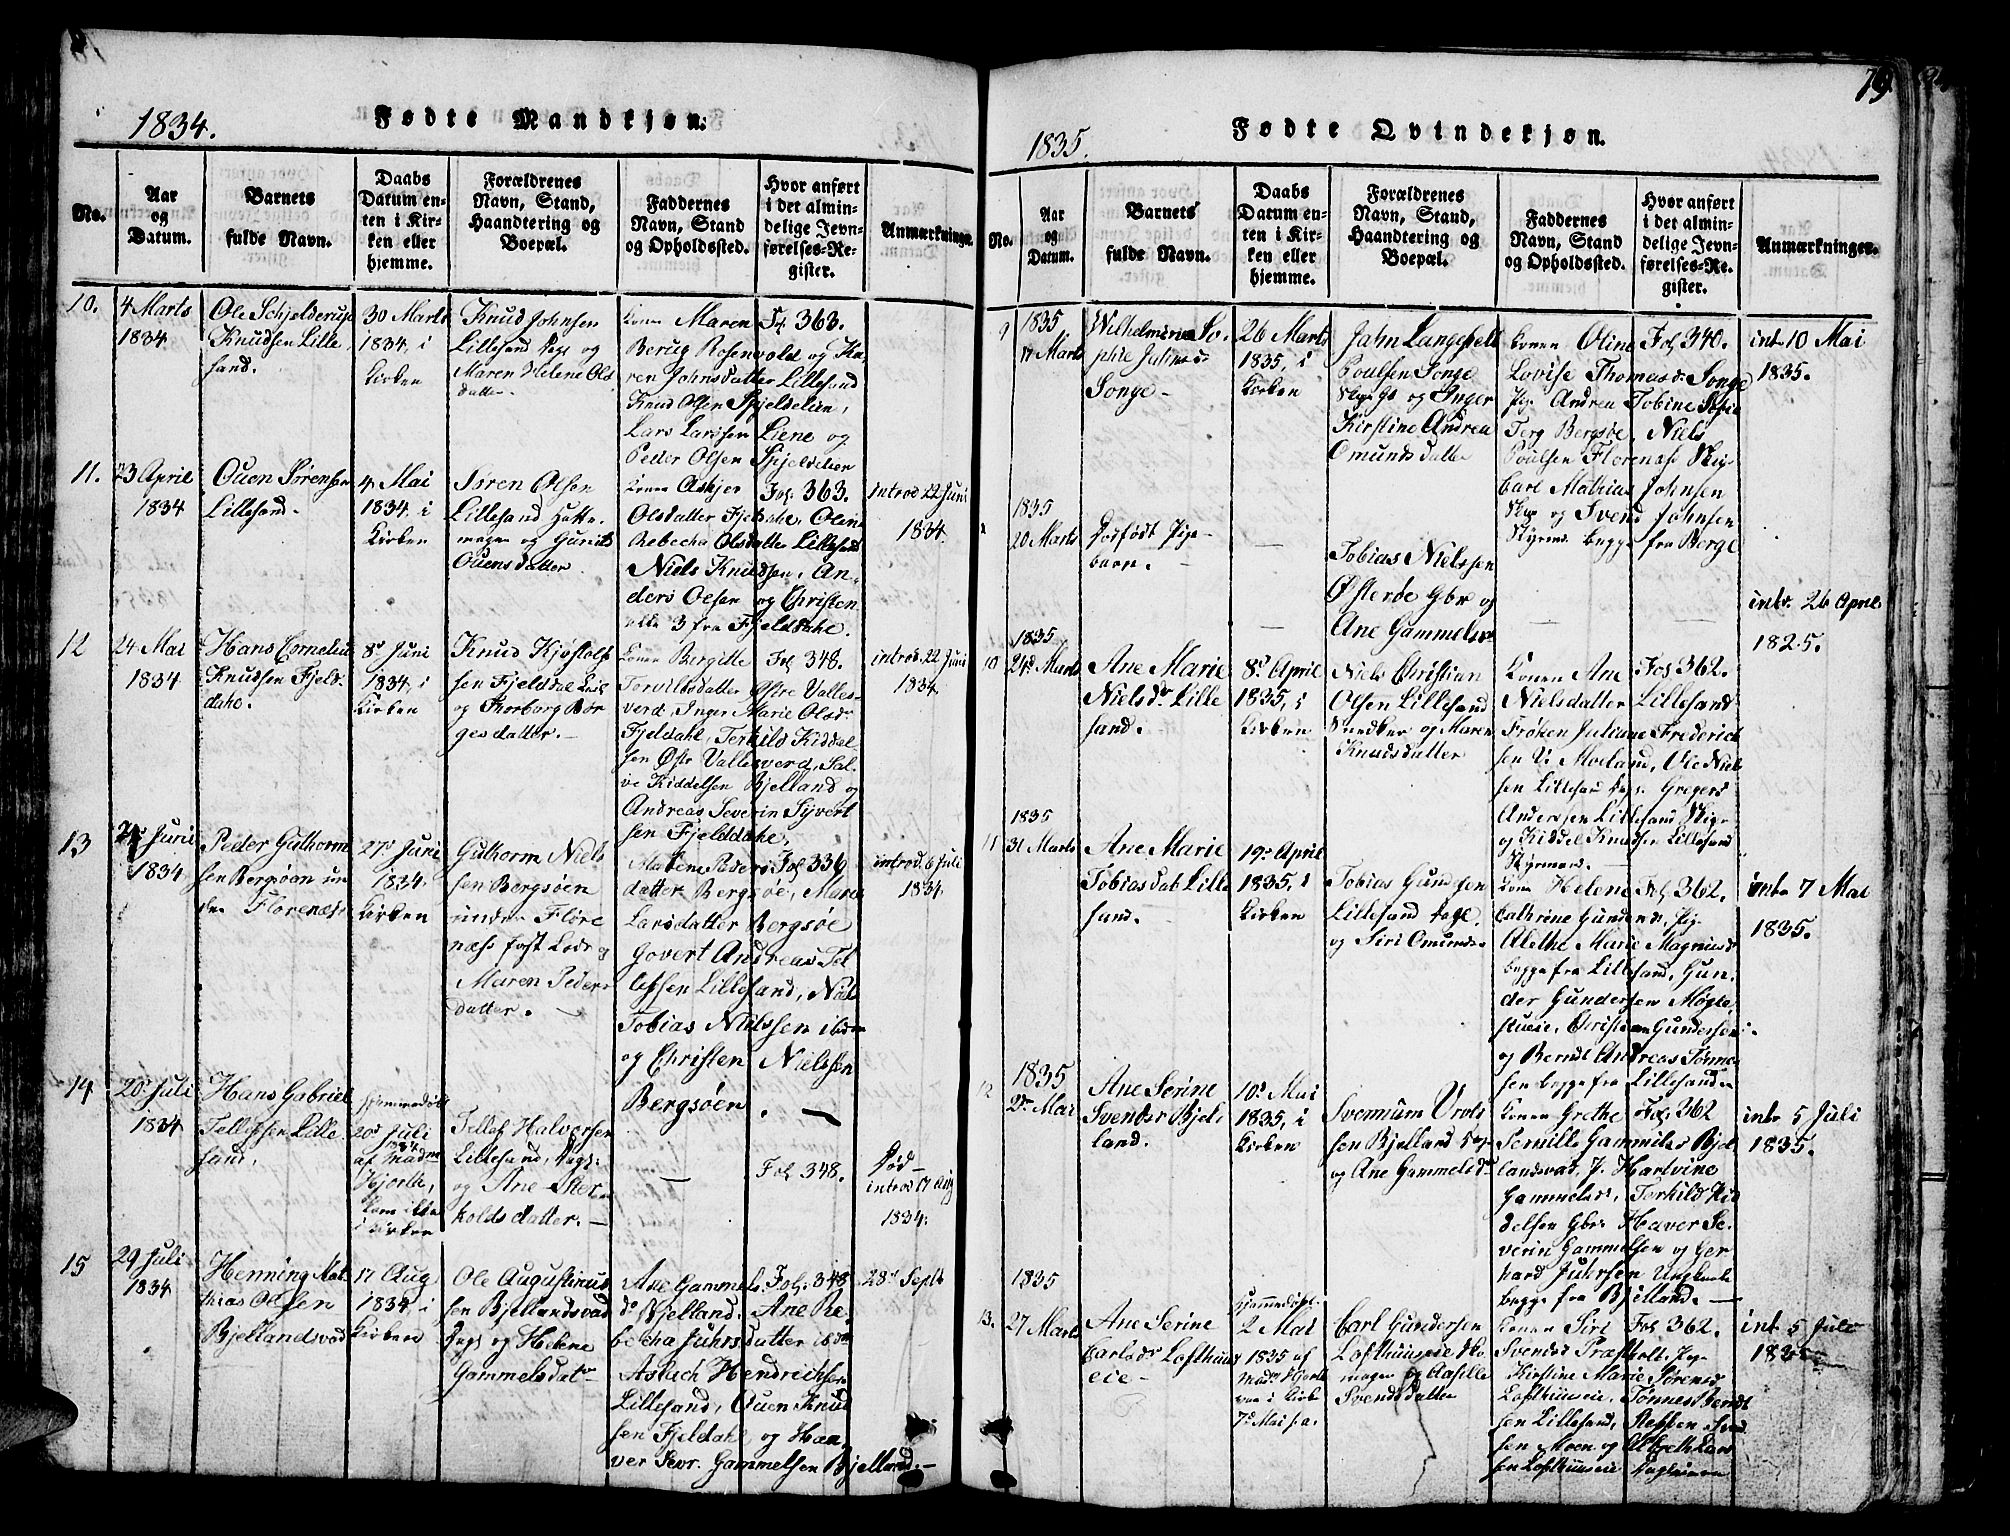 1834.
Fødte Mandkjøn.
No.
Aar
og
Datum.
Barnets
fulde Navn.
Daabs
Datum en-
ten i Kir-
ken eller
hjemme.
Forældrenes
Navn, Stand,
Haandtering og
Boepæl.
Faddernes
Navn, Stand
og Opholdssted.
Hvor anført
i det almin-
delige Jevn-
førelses-Re-
gister.
Anmærkninge
10.
4 Marts
1834
Ole Schjelderup
Knudsen Lille
sand.
30 Marts
1834, i
Kirken
Knud Johnsen
Lillesand Dags og
Maren Helene Ols
datter.
Konen Maren
Berug Rosenvold og Ka
ren Johnsdatter Lillesand
Knud Olsen Spjeldelien,
Lars Larssen Liene og
Peder Olsen Spjeldelien
Fol 363.
11.
23 April
1834
Ouen Sørensen
Lillesand.
4 Mai
1834 i
Kirken
Søren Olsen
Lillesand Hatte
mager og Gunild
Ouensdatter.
Konen Askjer
Olsdatter Fjeldahl, Oline
Rebecha Olsdatter Lillesand
Niels Knudsen, An
ders Olsen og Christen
alle 3 fra Fjelddahl.
Fol. 363.
introd 22 Juni
1834.
12
24 Mai
1834
Hans Corneliu
Knudsen Fjeld
dahl.
8de Juni
1834, i
Kirken
Knud Kjøstolf
sen Fjeldal
og Thorborg Bør
gesdatter.
Konen Bergitte
Torvildsdatter Østre Valles
verd, Inger Marie Olsdr
Fjeldahl, Terkild Kiddel
sen Østr Vallesverd, Sal
ve Kiddelsen Bjelland og
Andreas Severin Syvert
sen Fjelddahl.
Fol 348.
introd. 22 Juni
1834
13
Juni
1834
Peder Guthorm
sen Bergsøen un
der Florenæs
27de Juni
1834.
Kirken
Guthorm Niels
sen Bergsøen
under Flore
næs fast Lods og
Maren Peders
datter.
Malene Peders
datter Bergsøe, Maren
Larsdatter Bergsøe
Govert Andreas Tel
lefsen Lillesand, Niels
Tobias Nielssen ibidem
og Christen Nielssen
Bergsøen.
Fol 336
introd. 6 Juli
1834.
14
20de Juli
1834
Hans Gabriel
Tellefsen Lille
sand.
hjemmedøbt
20de Juli
1834
af Madme
Hjorte,
kom ikke
i Kirken
Tellef Halversen
Lillesand, Dags:
og Ane Ster
kolds datter.
Fol 348.
Død
introd 17 Aug
1834.
15
29 Juli
1834
Henning Mat
thias Olssen
Bjellandsvad
17 Aug
1834 i
Kirken
Ole Augustinus
sen Bjellandsvad
Dags og Helene
Gammelsdatr
Ane Gammels
dr Bjelland. Ane Re
becha Juhrsdatter ibdm
Aslach Hendrichsen
Lillesand, Ouen Knud
sen Fjeldahl og Haa
ver Sevr. Gammelsen Bjelland.
Fol. 348
28de Septb
1835.
Fødte Qvindekjøn.
79
No.
Aar
og
Datum.
Barnets
fulde Navn.
Daabs
Datum en-
ten i Kir-
ken eller
hjemme.
Forældrenes
Navn, Stand,
Haandtering og
Boepæl.
Faddernes
Navn, Stand
og Opholdssted.
Hvor anført
i det almin-
delige Jevn-
førelses-Re-
gister.
Anmærkninger.
9
1835
17 Marts
Wilhelmine So-
phie Jahns dr
Songe
26 Marts
1835, i
Kirken
Jahn Langefeldt
Poulsen Songe
og Inger
Kirstine Andrea
Omundsdatter
Konen Oline
Lovise Thomasdr Songe
Pige Andrea Tobine Sofie
Terg Bergsøe, Niels
Poulsen Florenæs
Carl Mathias Johnsen
og Svend Johnsen
Styrmd. begge fra Berge
Fol 340.
intr. 10 Mai
1835.
1835
20 Marts
Dødfødt Pige
barn.
Tobias Nielssen
Østerøe Gbr og
Ane Gammelsdr
intr. 26 April
1825.
10
1835
24de Marts
Ane Marie
Nielsdr Lille
sand.
8de April
1835, i
Kirken
Niels Christian
Olsen Lillesand
Snedker og Maren
Knudsdatter
Konen Ane
Nielsdatter Lillesand
Frøken Juliane Frederich
sen V. Moeland, Ole Niels
sen Lillesand Gregers
Andersen Lillesand
og Kiddel Knudsen Lillesand
Styrmand.
Fol 362.
11
1835
31 Marts
Ane Marie
Tobiasdatr Lille
sand.
19de April
1835, i
Kirken
Tobias Gundersen
Lillesand Dags
og Siri Omundsdr
Konen Helene
Cathrine Gundersdr, Pig
Alethe Marie Magnusdr
begge fra Lillesand, Gun
der Gundersen Møgle
stueie, Christian Gundersen
og Berndt Andreas Tønne
sen begge fra Lillesand
Fol 362.
intr 7 Mai
1835.
12
1835
2de Mai
Ane Serine
Svendsdr Bjel
land.
10de Mai
1835, i
Kirken
Svennum Urols
sen Bjelland
og Ane Gammelsdr
Konen Grethe
Pernille Gammelsdr Bjel
landsvad, P. Hartvine
Gammelsdr, Torkild Kid
delsen Gbr. Haver Se
verin Gammelsen og Ger
hard Juhrsen Ungkarle
begge fra Bjelland.
Fol. 362
intr 5 Juli
1835.
13.
1835
27 Marts
Ane Serine
Carlsdr Lofthuus
eie
hjemmedøbt
2 Mai
1835 af
Madm Hjorte
var i Kirk
7de Mai s.a.
Carl Gundersen
Lofthuuseie Sko
mager og Aasille
Svendsdatter
Konen Siri
Svendsdr Præstholt, Pig
Kirstine Marie Sørensdr
Lofthuuseie, Tønnes Bendt
sen Lillesand, Steffen Svend
sen Moen og Albreth Lars
sen Lofthuuseie Ungkarle
Fol 362.
int. 5 Juli
1835